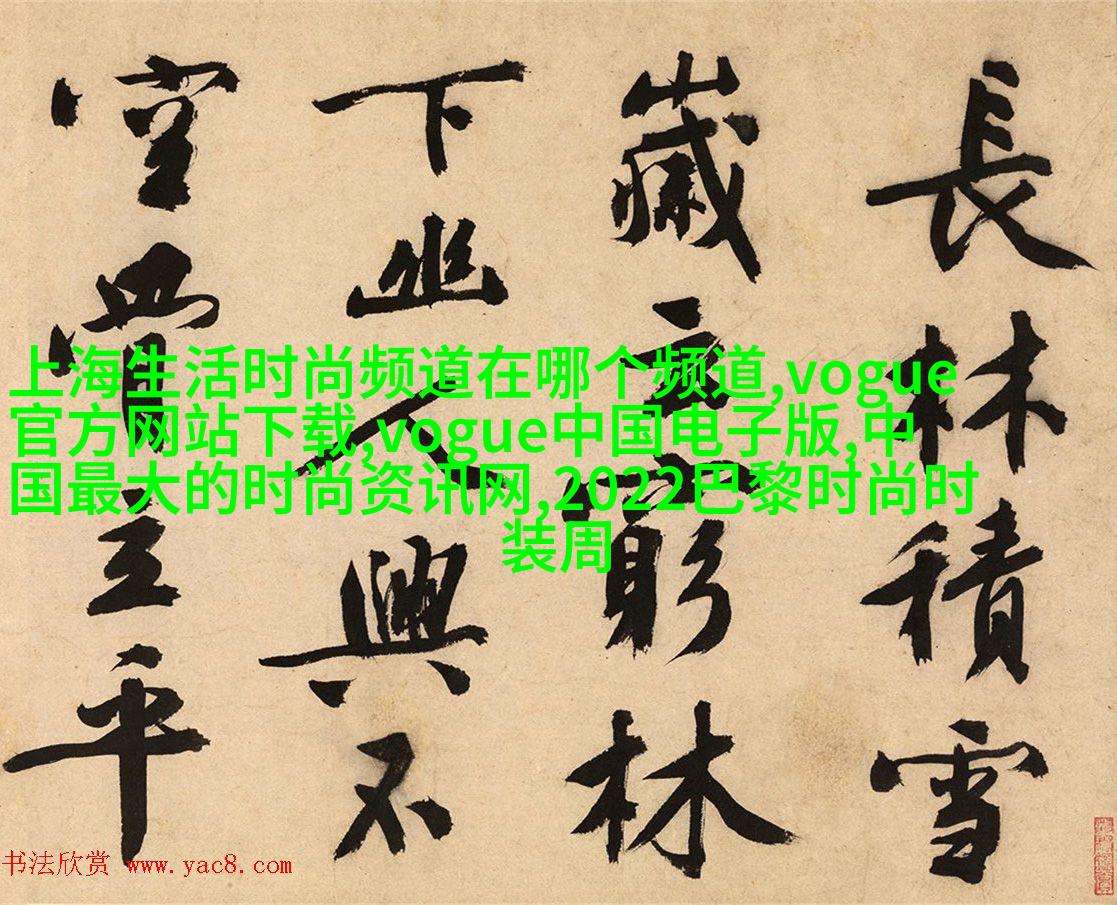 長林積雪
歲云窮林
下幽人興不
空平
上海生活时尚频道在哪个频道,vogue
官方网站下载,vogue中国电子版,中
国最大的时尚资讯网,2022巴黎时尚时
装周
书法欣赏 www.yac8.com